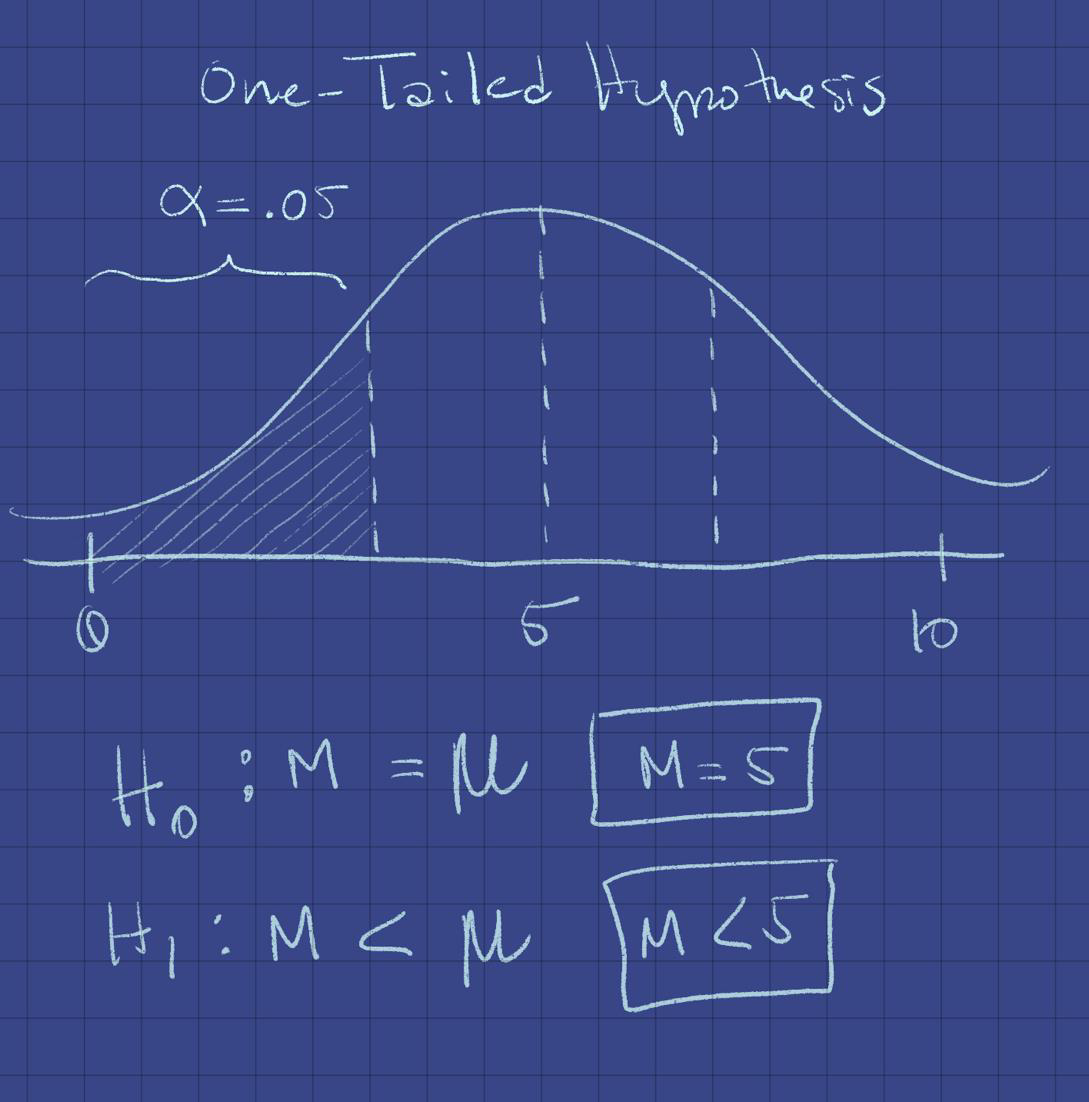 One-Tailed Hypothesis
α = .05
0 5 10
H₀ : M = μ M = 5
H₁ : M < μ M < 5